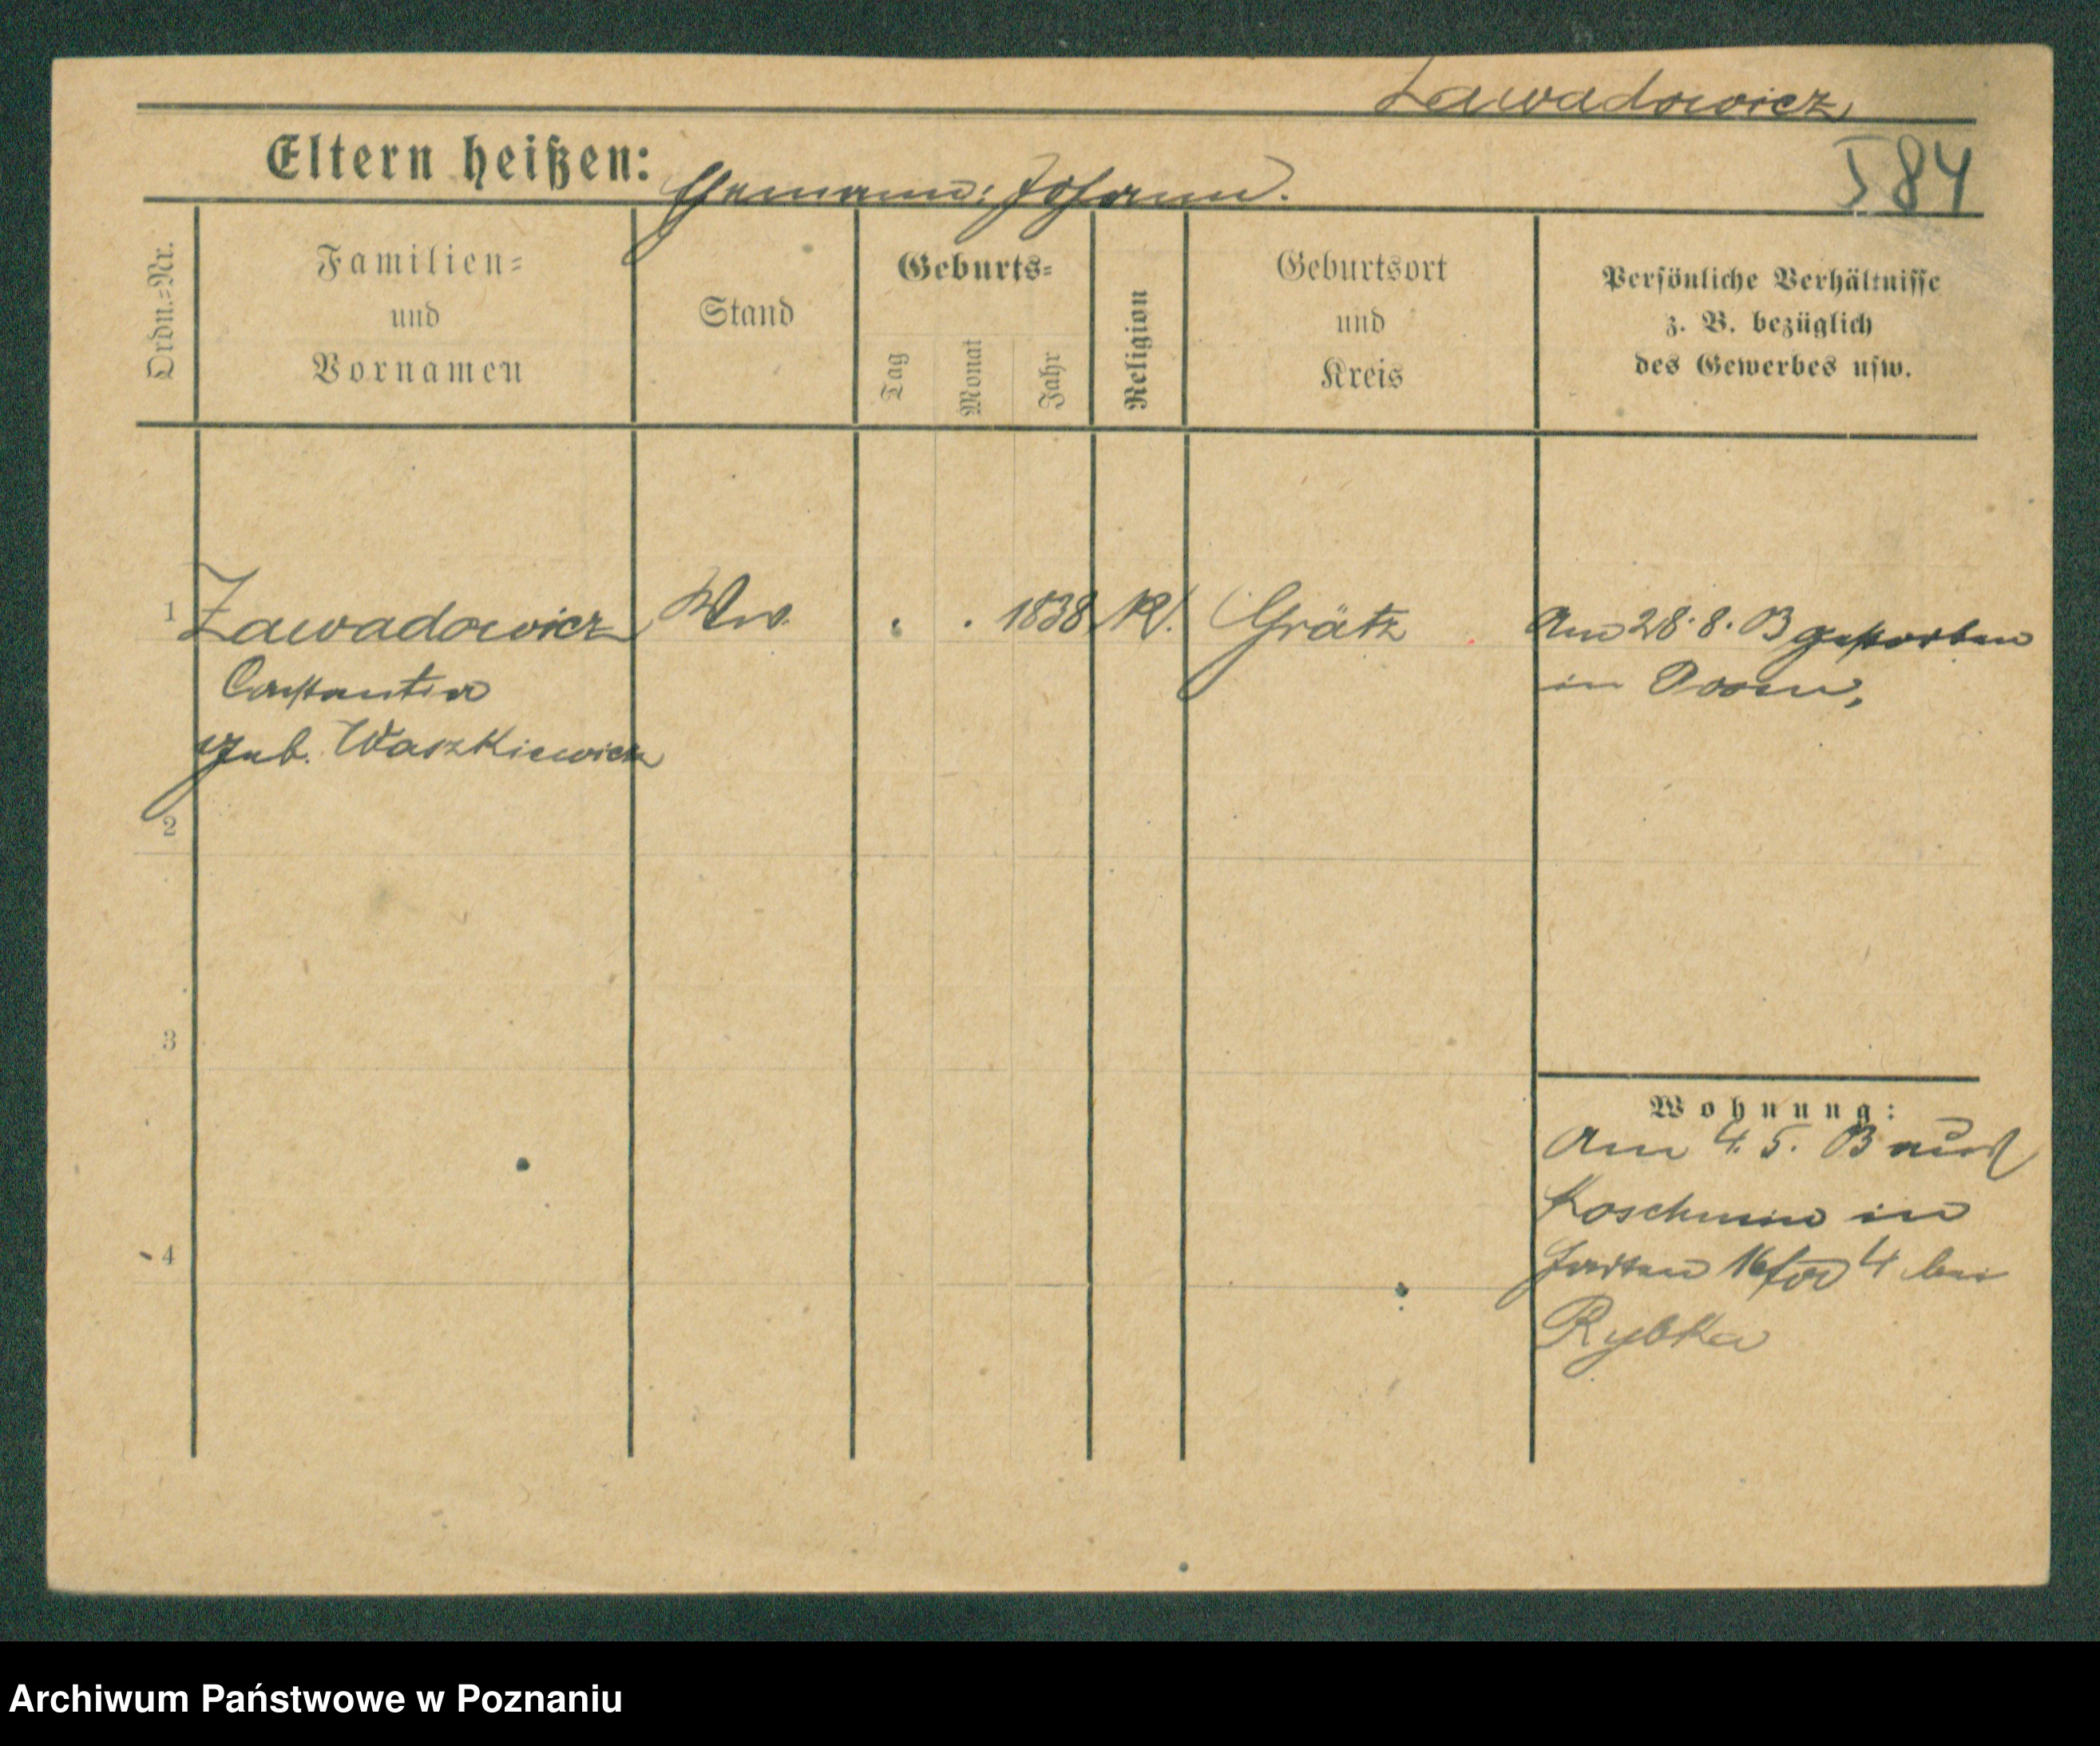 Zawadowicz
Eltern heißen: Ehemann: Johann.
I 84
Ordn.=Nr.
Familien=
und
Vornamen
Stand
Geburts=
Tag
Monat
Jahr
Religion
Geburtsort
und
Kreis
Persönliche Verhältnisse
z. B. bezüglich
des Gewerbes usw.
1 Zawadowicz Ww. . . 1838 kl. Grätz Am 28.8.03 gestorben
Constantia in Posen,
geb. Waszkiewicz
2
3
4
Wohnung:
Am 4.5.03 aus
Koschmin in
16 4 bei
Rybka
Archiwum Państwowe w Poznaniu